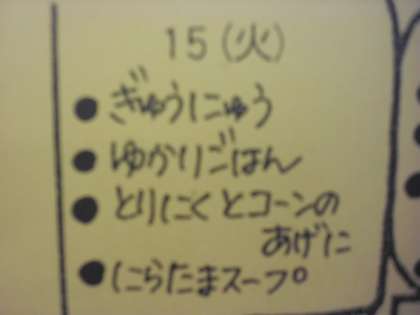 15(火)
●ぎゅうにゅう
●ゆかりごはん
●とりにくとコーンの
あげに
●にらたまスープ